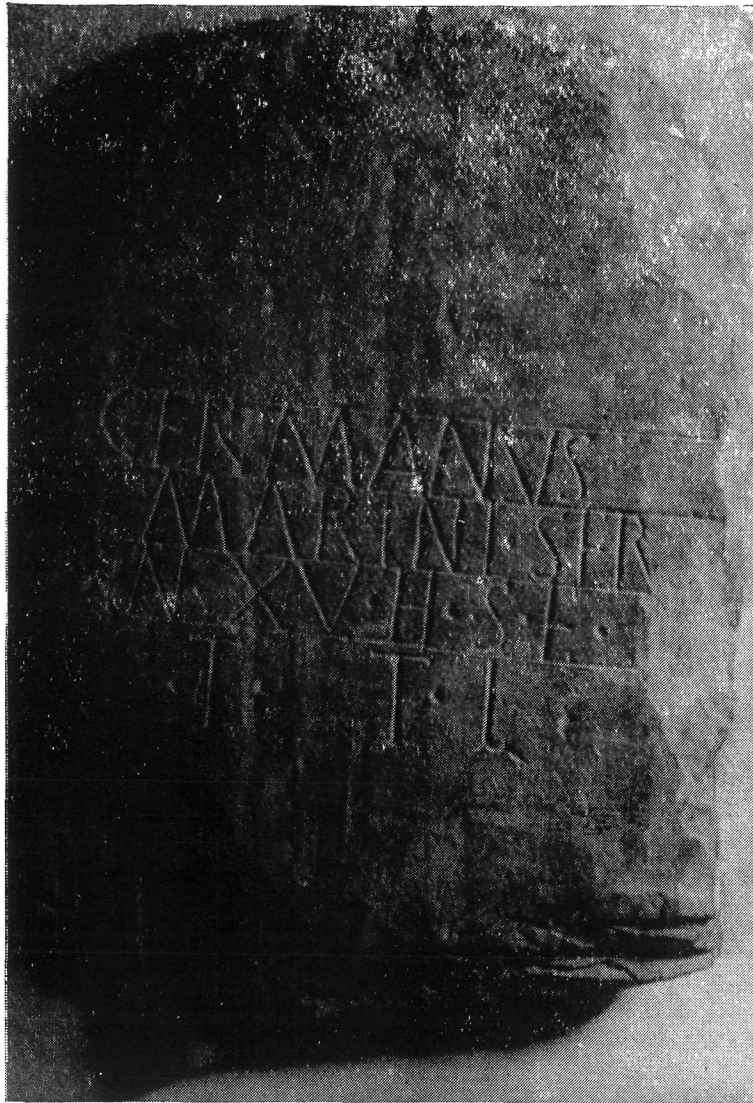 GERMANVS
MARINI · SER
AN XV · H · S · E ·
T · T · L